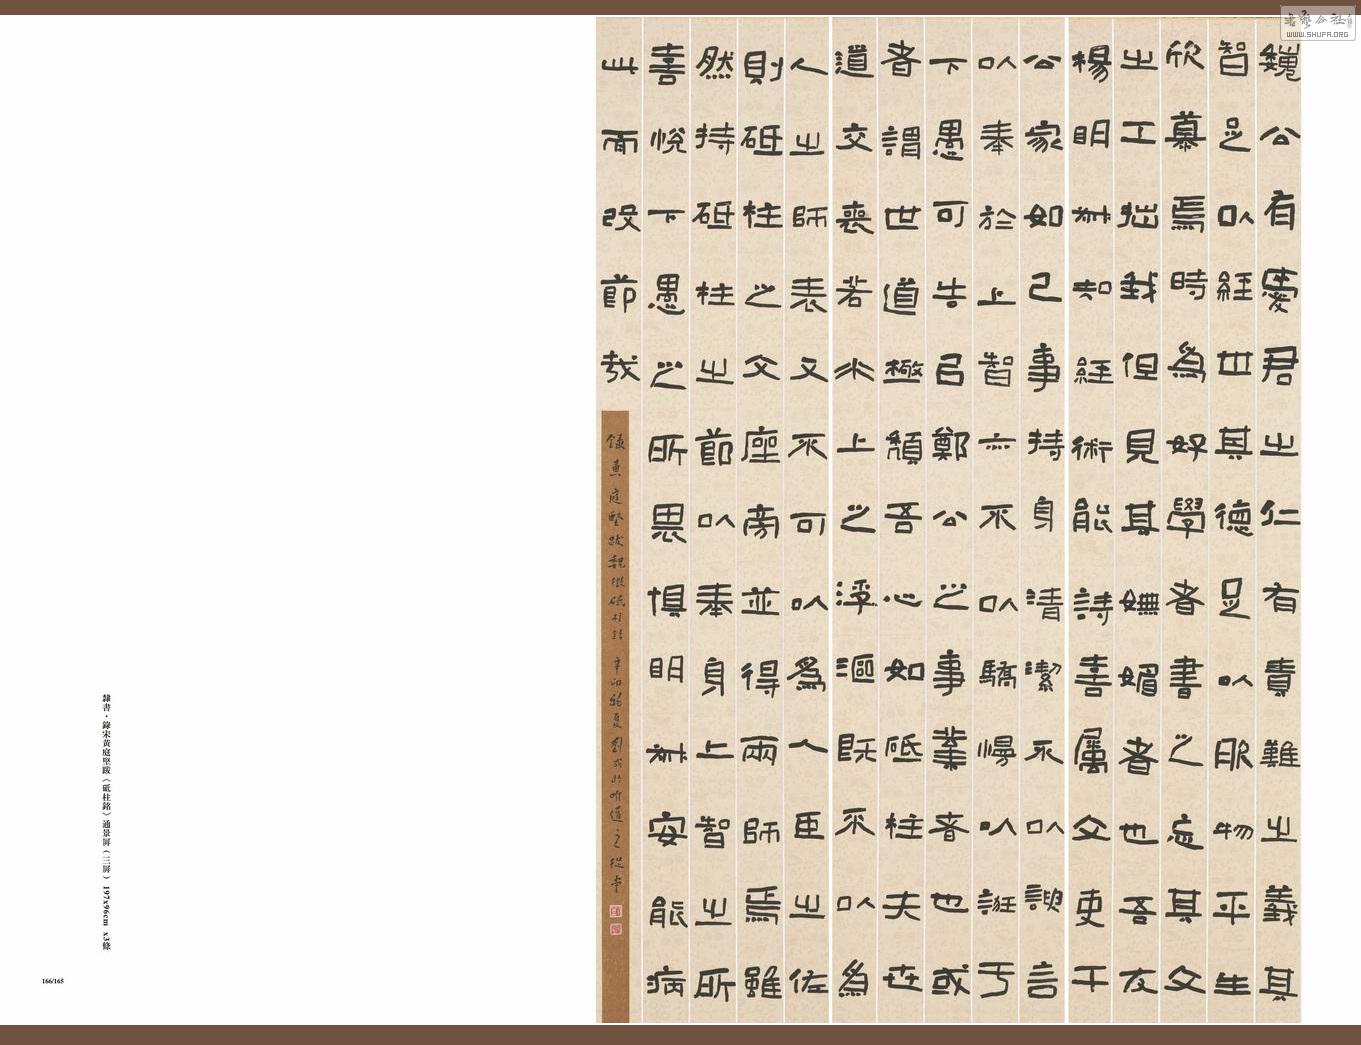 魏公有愛君之仁有責難之義其
智足以經世其德足以服物平生
欣慕焉時為好學者書之忘其文
之工拙我但見其嫵媚者也吾友
楊明叔知經術能詩喜屬文吏干
公家如己事持身清潔不以諛言
以奉於上智亦不以驕慢以誑于
下愚可告㠯鄭公之事業者也或
者謂世道極頹吾心如砥柱夫世
道交喪若水上之浮漚既不以為
人之師表又不可以為人臣之佐
則砥柱之文座旁並得兩師焉雖
然持砥柱之節以奉身上智之所
喜悅下愚之所畏懼明叔安能病
此而改節哉
錄黃庭堅跋魏徵砥柱銘 辛卯初夏劉於唯道之從堂
隸書·錄宋黃庭堅跋《砥柱銘》通景屏（三屏） 197x96cm x3條
166/165
WWW.SHUFA.ORG